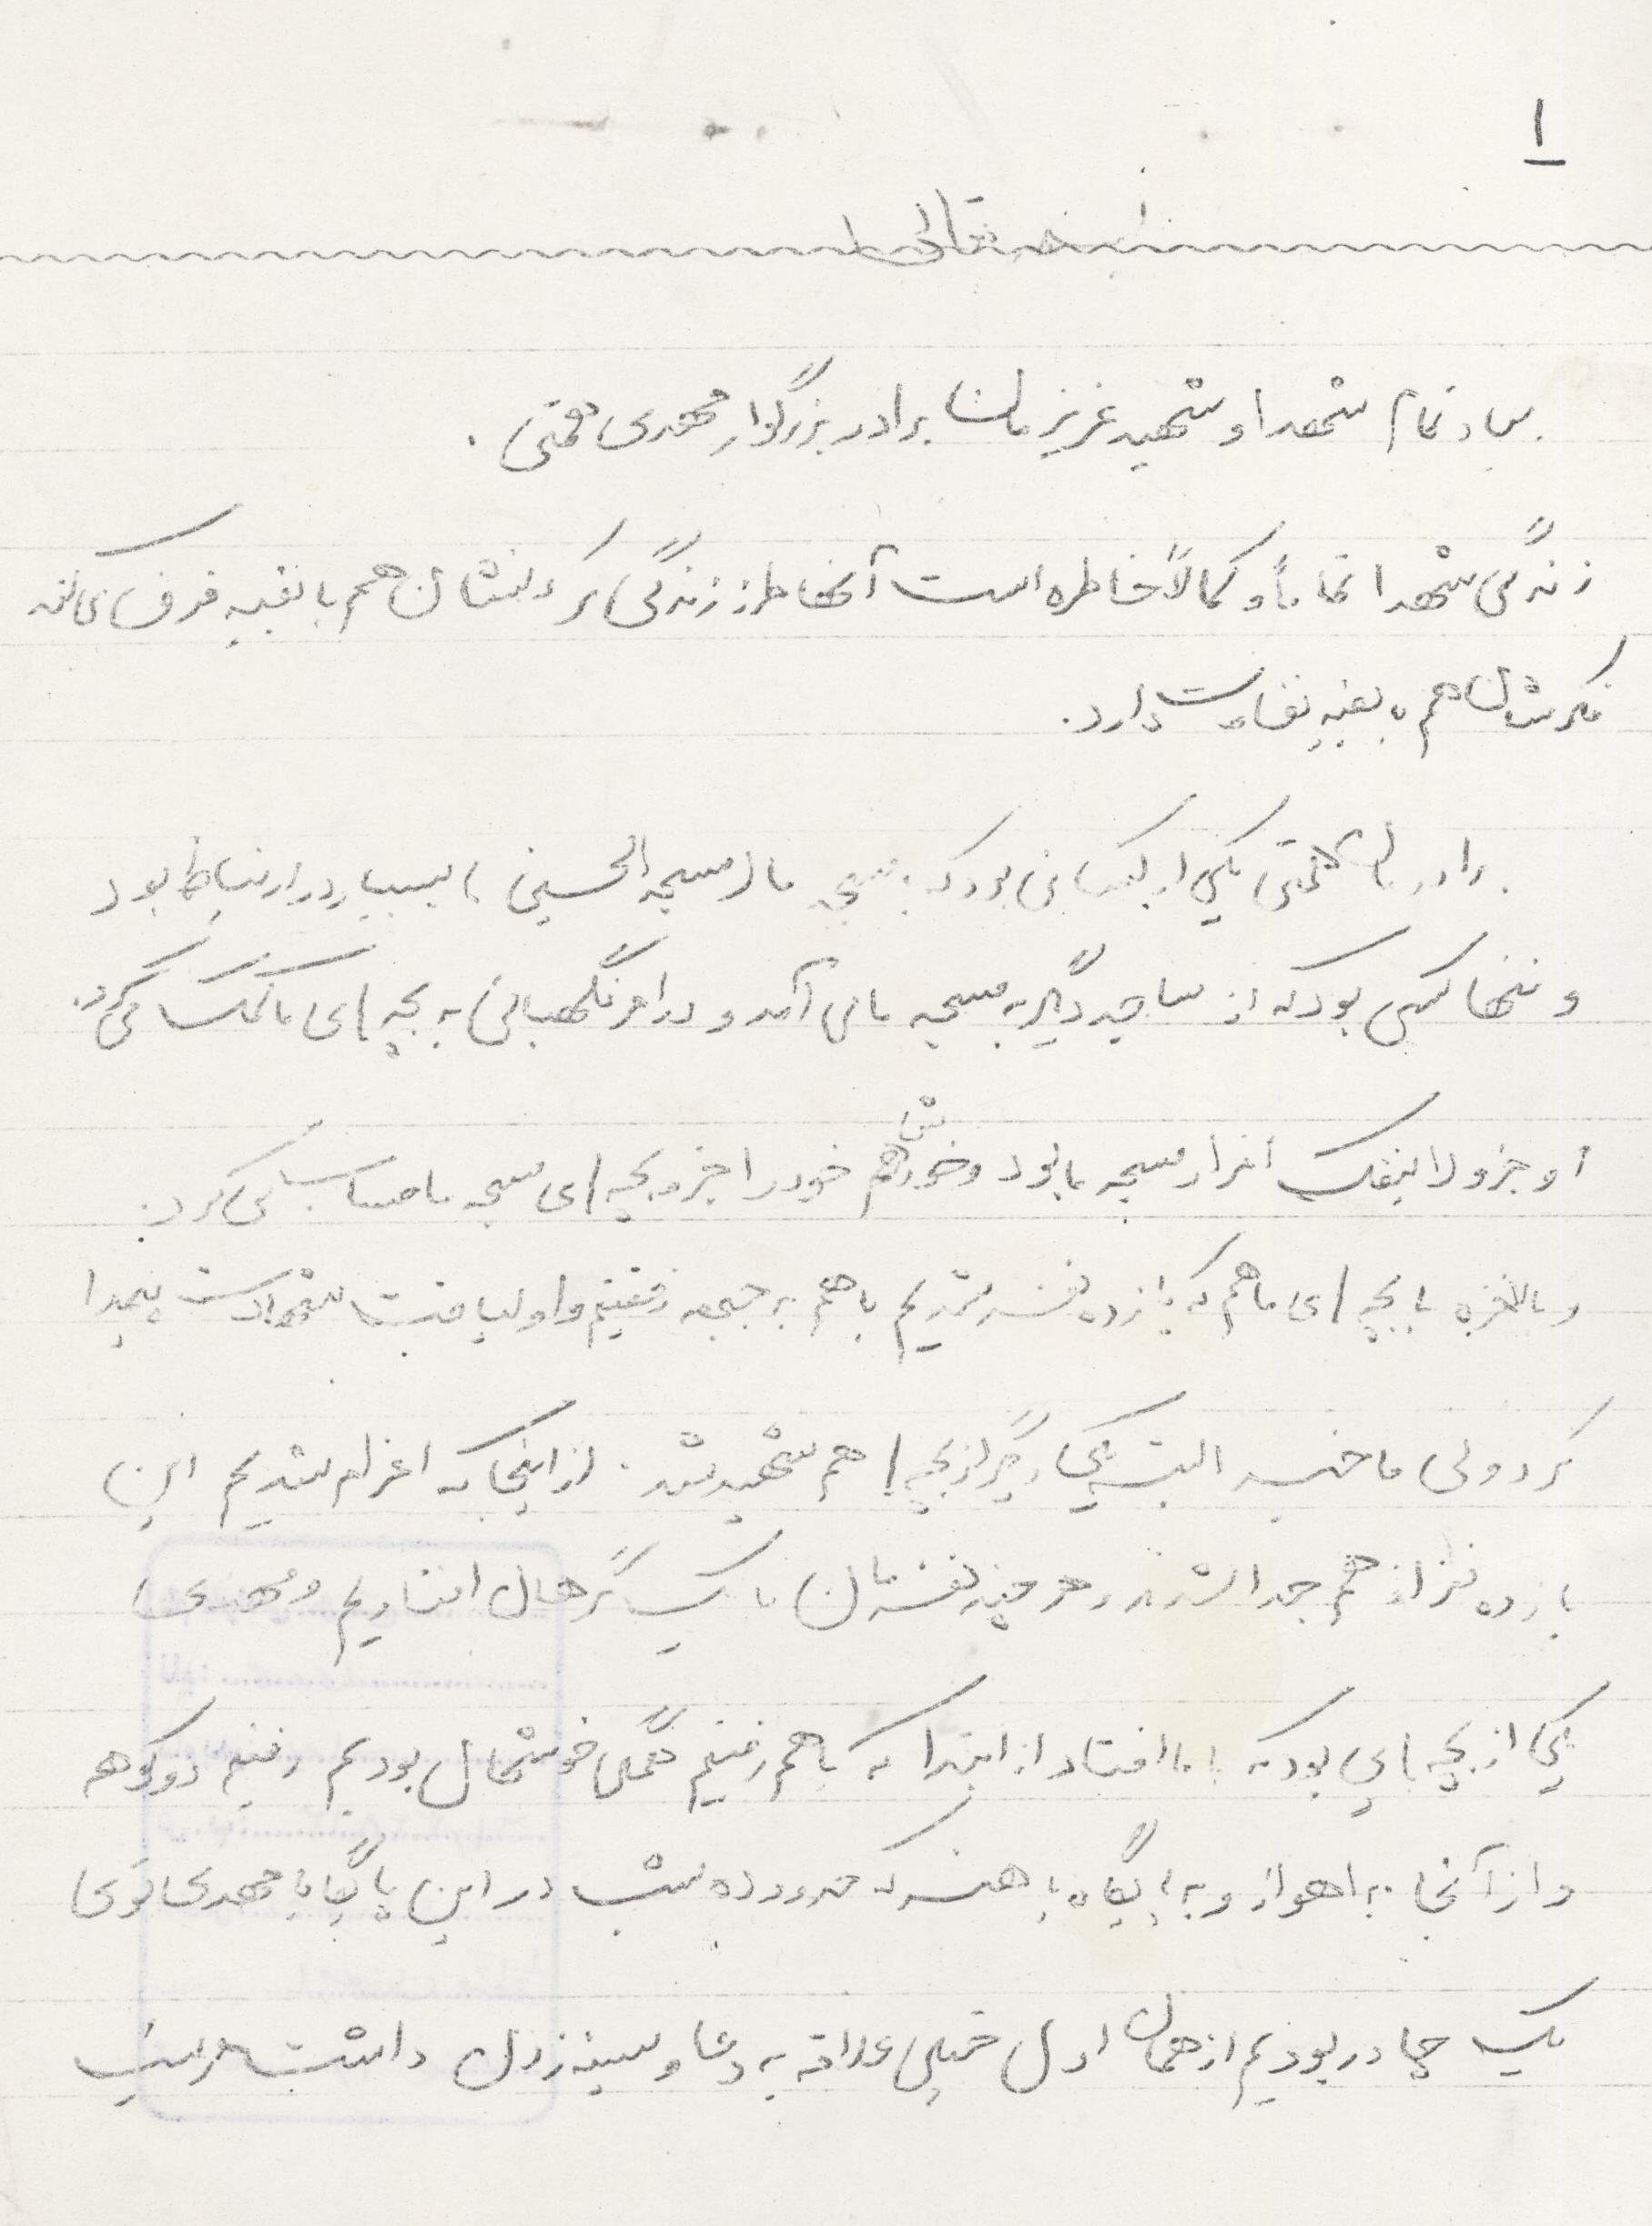 ۱
باسمه تعالی
بیاد تمام شهدا و شهید عزیزمان برادر بزرگوار مهدی همتی .
زندگی شهدا تماماً و کمالاً خاطره است آنها طرز زندگی کردنشان هم با بقیه فرق می‌کند
فکرشان هم با بقیه تفاوت دارد.
برادرمان همتی یکی از کسانی بود که به مسجد ما (مسجد الحسین) بسیار در ارتباط بود
و تنها کسی بود که از مساجد دیگر به مسجد ما می آمد و در امر نگهبانی به بچه های ما کمک می کرد.
او جزو لاینفک افراد مسجد ما بود و خودش هم خود را جزو بچه های مسجد ما حساب می کرد.
و بالاخره با بچه های ما هم که یازده نفر شدیم با هم به جبهه رفتیم و او لیاقت شهادت پیدا
کرد ولی ما خیر البته یکی دیگر از بچه ها هم شهید شد. از اینجا که اعزام شدیم این
یازده نفر از هم جدا شدند و هر چند نفرمان با یک گردان افتادیم و مهدی
یکی از بچه هایی بود که با ما افتاد از ابتدا که با هم رفتیم همگی خوشحال بودیم رفتیم دوکوهه
و از آنجا به اهواز و به پایگاه باهنر که حدود ده شب در این پایگاه با مهدی توی
یک چادر بودیم از همان اول خیلی علاقه به دعا و سینه زدن داشت هر شب